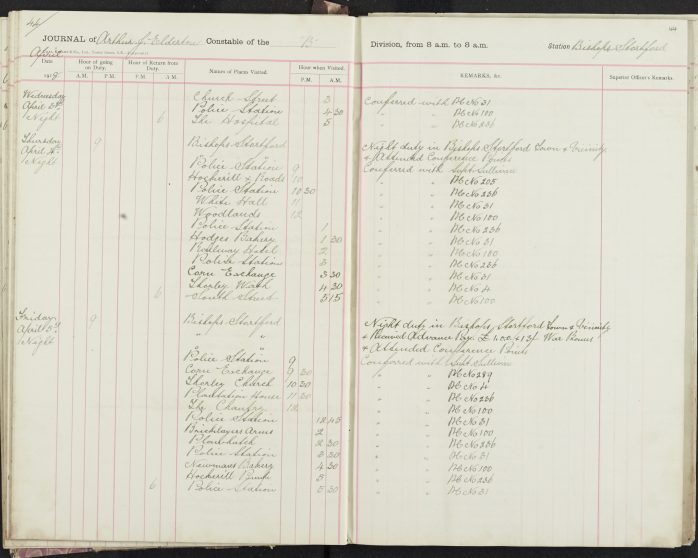 46
JOURNAL of Arthur S. Elderton Constable of the "B" Division, from 8 a.m. to 8 a.m. Station Bishops Stortford
April
Date Hour of going on Duty. Hour of Return from Duty. Names of Places Visited. Hour when Visited. REMARKS, &c. Superior Officer's Remarks.
191 A.M. P.M. P.M. A.M. P.M. A.M.
Wednesday Church Street 3 Conferred with PC No 31
April 3rd Police Station 4 30 " " PC No 100
Night 6 The Hospital 5 " " PC No 236
Thursday 9 Bishops Stortford Night duty in Bishops Stortford Town & Vicinity
April 4th & Attended Conference Points
Night Police Station 9 Conferred with Supt Sullivan
Hockerill X Roads 10 " " PC No 205
Police Station 10 30 " " PC No 236
White Hall 11 " " PC No 31
Woodlands 12 " " PC No 100
Police Station 1 " " PC No 236
Hodges Bakery 1 30 " " PC No 31
Railway Hotel 2 " " PC No 100
Police Station 3 " " PC No 236
Corn Exchange 3 30 " " PC No 31
Thorley Wash 4 30 " " PC No 4
6 South Street 5 15 " " PC No 100
Friday 9 Bishops Stortford Night duty in Bishops Stortford Town & Vicinity
April 5th " " & Received Advance Pay £ War Bonus
Night " & Attended Conference Points
Police Station 9 Conferred with Supt Sullivan
Corn Exchange 9 30 " " PC No 289
Thorley Church 10 30 " " PC No 4
Plantation House 11 30 " " PC No 236
The Chantry 12 " " PC No 100
Police Station 12 45 " " PC No 31
Bricklayers Arms 2 " " PC No 100
Plawhatch 2 30 " " PC No 236
Police Station 3 30 " " PC No 31
Newmans Bakery 4 30 " " PC No 100
Hockerill Pump 5 " " PC No 236
6 Police Station 5 30 " " PC No 31